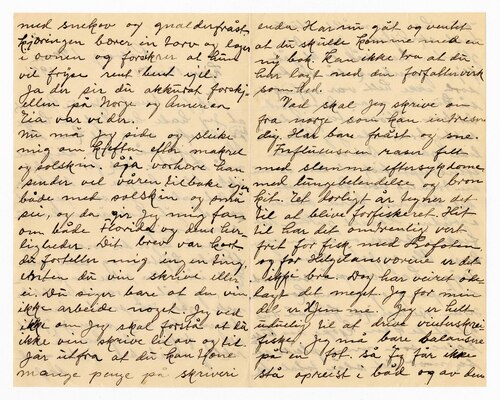 med snekov og gnalderfrost
kjæringen bærer in torv og lager
i ovnen og forsikrer at hun
vil fryse rent ihjel.
Ja der sir du akkurat forskj-
ellen på Norge og Amerea
Eia var vi der.
Nu må jeg side og slike
mig om kjeften efter makrel
og solskin. Sja vorherre han
sender vel våren tilbake igen
både med solskin og små
sei, og da gir jeg mig fan
om både Florida og dens her-
ligheder. Dit brev var kort
du forteller mig ingen ting
enten du vin skrive eller
ei. Du siger bare at du vin
ikke arbeide noget. Jeg ved
ikke om Jeg skal forstå at du
ikke vin skrive letav og til
går utfra at du kan tjene
mange penge på skriveri
enda. Har nu gåt og ventet
at du skulde komme med en
ny bok, kan ikke tro at du
har lagt med din forfattervirk
somhed.
Vad skal Jeg skrive om
fra norge som kan intresere
dig. Har bare fråst og sne
Influensaen raser fælt
med slemme eftersykdomme
med lungebetendelse og bron
kit. Tet dorligt ar tegner det
til at blive forfiskeriet. Hit
til har det omtrenlig vert
frit for fisk med Lofoten
og for Helgelansvorene er det
ikke bra. Dog har veiret øde-
lagt det meget Jeg for min
del er Hjemme. Jeg er helt
uduelig til at drive vinterskrei
fiske. Jeg må bare balansere
på en fot. så Jeg får ikke
stå opreist i båd og av den